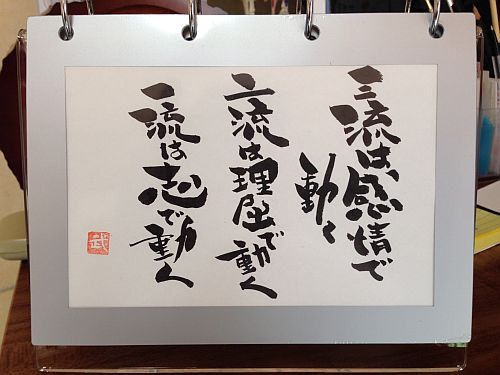 三流は、感情で
動く
二流は理屈で動く
一流は志で動く